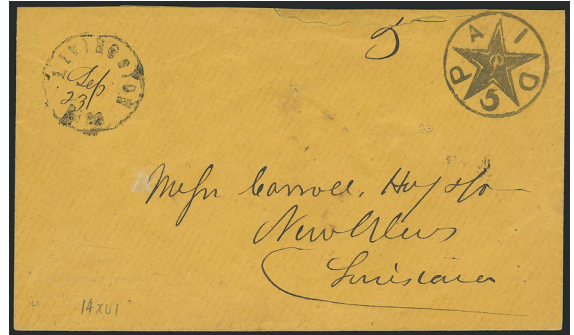 LIVINGSTON
Sep
23
5
PAID
5
Messrs Carroll, Hoy & Co
New Orleans
Louisiana
14XU1